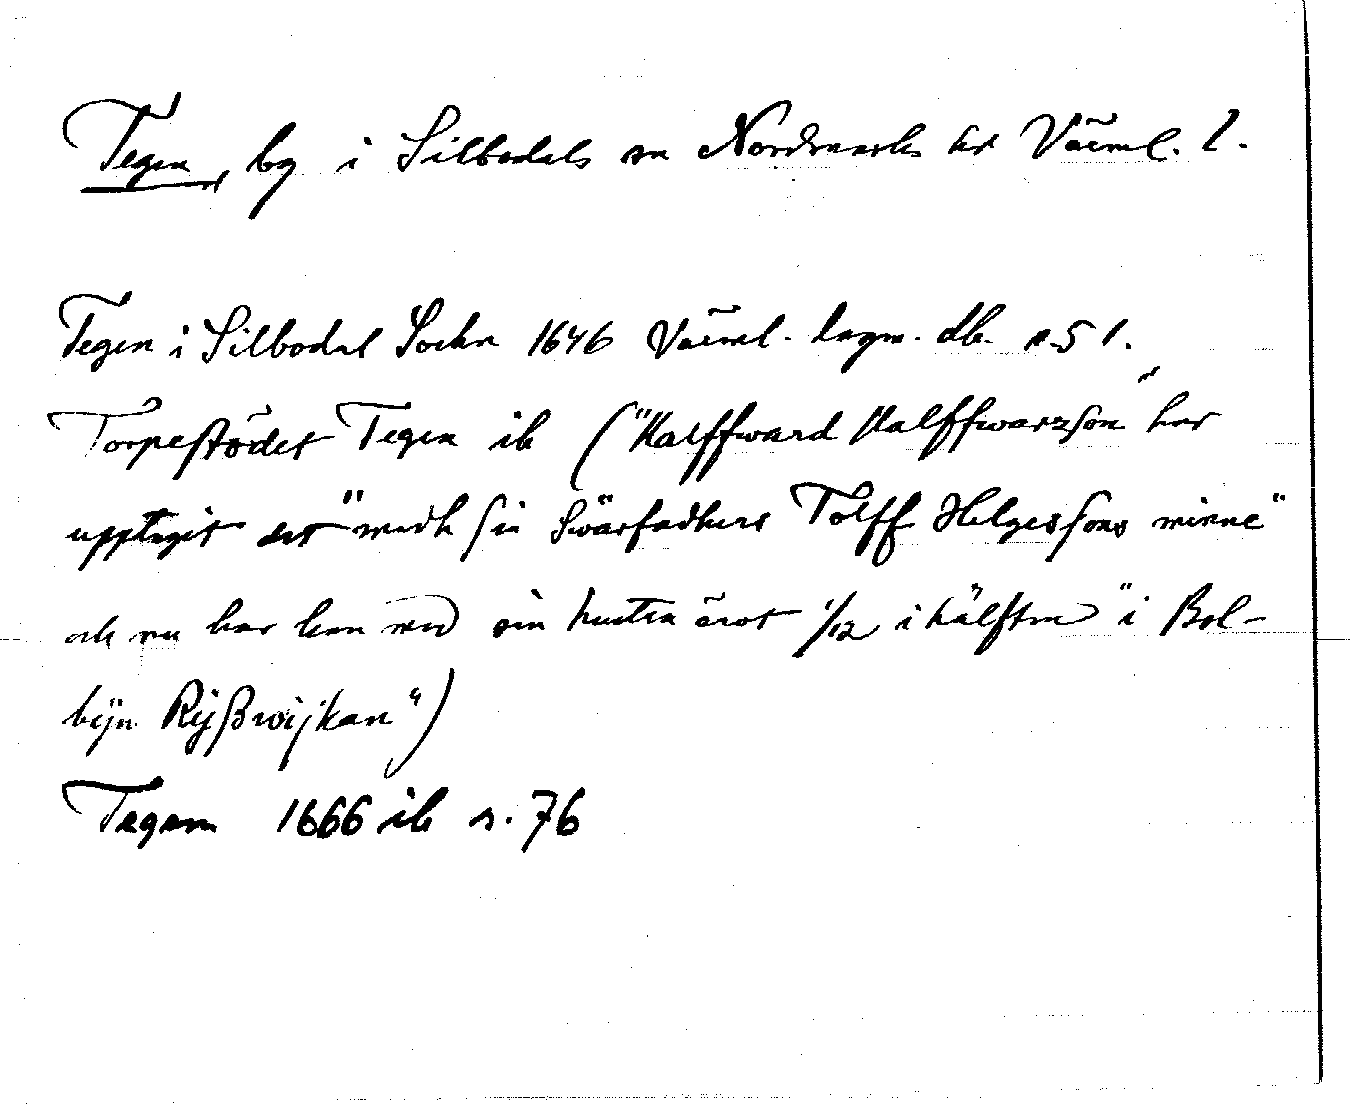 Tegen, by i Silbodals sn Nordmarks hd Värml. l.
Tegen i Silbodal Sochn 1646 Värml. lagm. db. s. 51.
Torpestödet Tegen ib ("Halffward Halffwarzson" har
upptagit det "medh sin Swärfadhers Tolff Helgessons minne"
och nu har han med sin hustru ärvt 1/12 i hälften "i Bol-
bÿn Rÿßwijkan")
Tegen 1666 ib s. 76